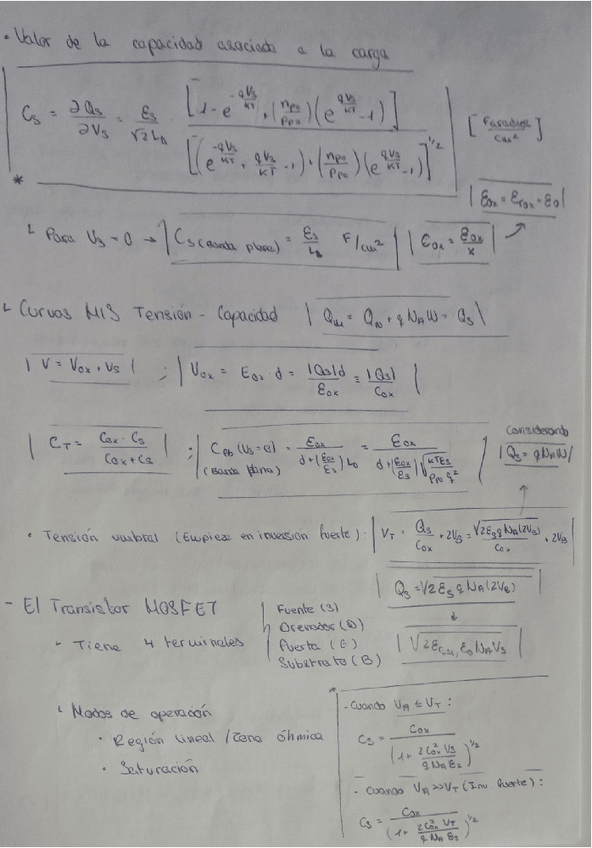 • Valor de la capacidad asociada a la carga
C_S = ∂Q_S/∂V_S = ε_S/(√2 L_D) · [1 - e^(-qV_S/KT) + (n_p0/p_p0)(e^(qV_S/KT) - 1)] / [(e^(-qV_S/KT) + qV_S/KT - 1) + (n_p0/p_p0)(e^(qV_S/KT) - 1)]^(1/2) [Faradios/cm²]
*
| ε_ox = ε_rox · ε_0 |
└ Para V_S = 0 → | C_S (Banda plana) = ε_S/L_D F/cm² | | C_ox = ε_ox/x |
└ Curvas MIS Tensión - Capacidad | Q_M = Q_N + q N_A W = Q_S |
| V = V_ox + V_S | ; | V_ox = E_ox · d = |Q_S| d/ε_ox = |Q_S|/C_ox |
Considerando
| Q_S = q N_A W |
| C_T = C_ox · C_S/(C_ox + C_S) | ; | C_FB (V_S = 0) = ε_ox/(d + (ε_ox/ε_S) L_D) = ε_ox/(d + (ε_ox/ε_S) √(KTε_S/(p_p0 q²))) |
(Banda plana)
• Tensión umbral (Empieza en inversion fuerte): | V_T = Q_S/C_ox + 2V_B = √(2ε_S q N_A (2V_B))/C_ox + 2V_B |
| Q_S = √(2 ε_S q N_A (2V_B)) |
- El Transistor MOSFET
└ Tiene 4 terminales
Fuente (S)
Drenador (D)
Puerta (G)
Substrato (B)
└ Modos de operación
• Región lineal / Zona óhmica
• Saturación
- Cuando V_A ≤ V_T :
C_S = C_ox/(1 + 2C_ox² V_S/(q N_A ε_S))^(1/2)
- Cuando V_A >> V_T (Inv. fuerte) :
C_S = C_ox/(1 + 2C_ox² V_T/(q N_A ε_S))^(1/2)